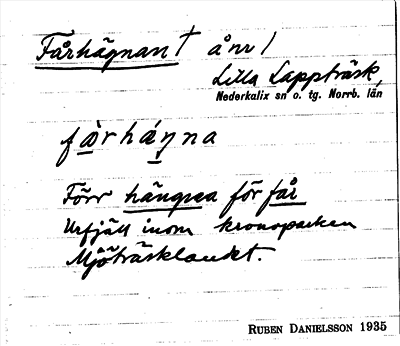 Fårhägnan † å nr 1
Lilla Lappträsk,
Nederkalix sn o. tg. Norrb. län
fȧrhäŋna
Förr hängsea för får
Urfjäll inom kronoparken
Mjöträsklandet.
RUBEN DANIELSSON 1935